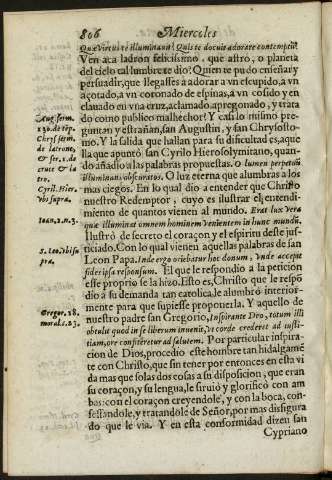 806 Miercoles
Quæ virtus te illuminauit? Quis te docuit adorare contemptū?
Ven aca ladron felicissimo, que astro, o planeta
del cielo tal lumbre te dio? Quien te pudo enseñar y
persuadir, que llegasses à adorar a vn escupido, a vn
açotado, a vn coronado de espinas, a vn cosido y en
clauado en vna cruz, aclamado, apregonado, y trata
do como publico malhechor? Y casi lo mismo pre-
Aug. serm. guntan y estrañan, san Augustin, y san Chrysosto-
130. de tēp. mo. Y la salida que hallan para su dificultad es, aque
Chrys. serm. lla que apuntò san Cyrilo Hierosolymitano, quan-
de latrone, do añadio a las palabras propuestas. O lumen perpetuū
& ser. 2. de illuminans obscuratos. O luz eterna que alumbras a los
cruce & la mas ciegos. En lo qual dio a entender que Christo
tro.
Cyril. Hier. nuestro Redemptor, cuyo es ilustrar el entendi-
vbi supra. miento de quantos vienen al mundo. Erat lux vera
Ioan. 1. n. 3. quæ illuminat omnem hominem venientem in hunc mundū.
Ilustrò de secreto el coraçon y el espiritu deste jus-
ticiado. Con lo qual vienen aquellas palabras de san
S. Leo. vbi su Leon Papa. Inde ergo oriebatur hoc donum, vnde accepit
pra. fides ipsa responsum. El que le respondio a la peticion
esse proprio se la hizo. Esto es, Christo que le respō
dio a su demanda tan catolica, le alumbrò interior-
mente para que supiesse proponerla. Y aquello de
Gregor. 18. nuestro padre san Gregorio, Inspirante Deo, totum illi
moral. c. 23. obtulit quod in se liberum inuenit, vt corde crederet ad iusti-
tiam, ore confiteretur ad salutem. Por particular inspira-
cion de Dios, procedio este hombre tan hidalgamē
te con Christo, que sin tener por entonces en esta vi
da mas que solas dos cosas a su disposicion, que eran
su coraçon, y su lengua, le siruiò y glorificò con am
bas: con el coraçon creyendole, y con la boca, con-
fessandole, y tratandole de Señor, por mas disfigura
do que le via. Y en esta conformidad dizen san
Cypriano